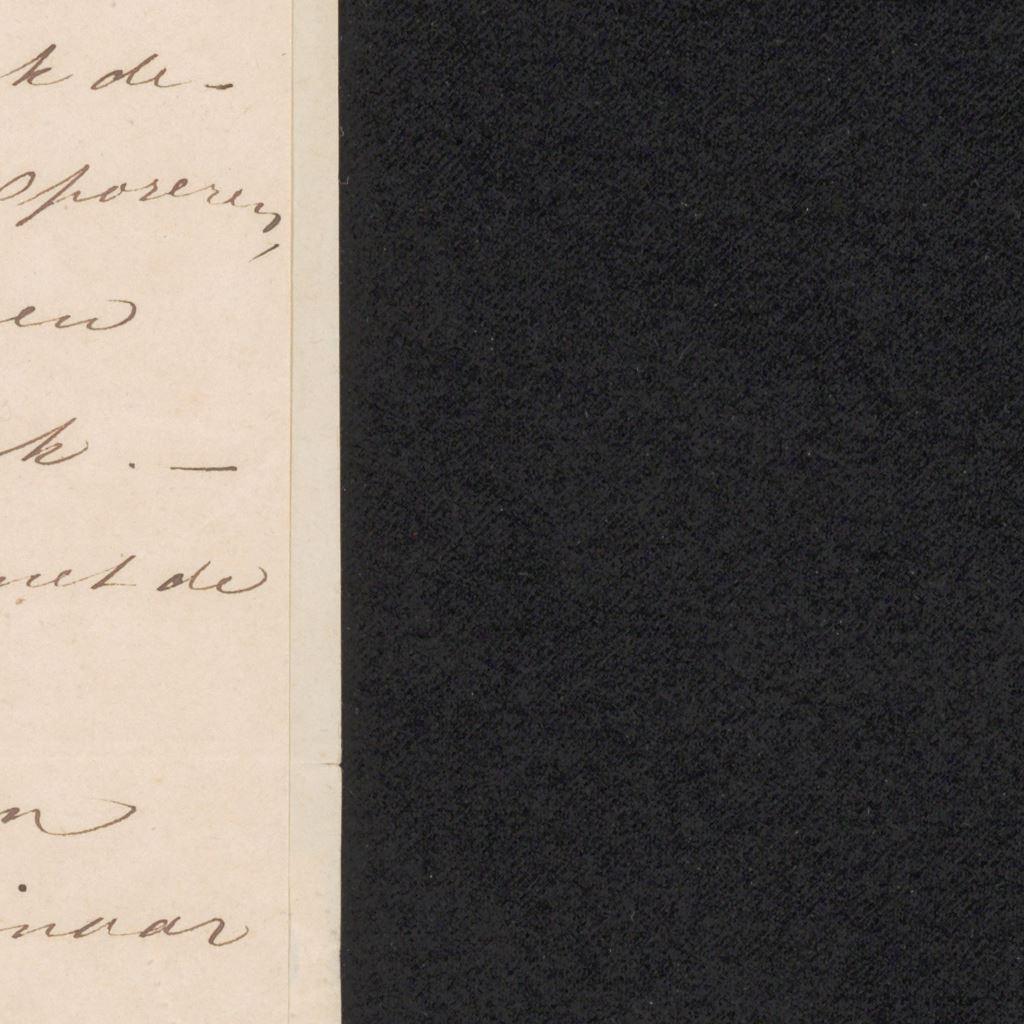 k de-
sporeren,
en
k. —
met de
n
inaar